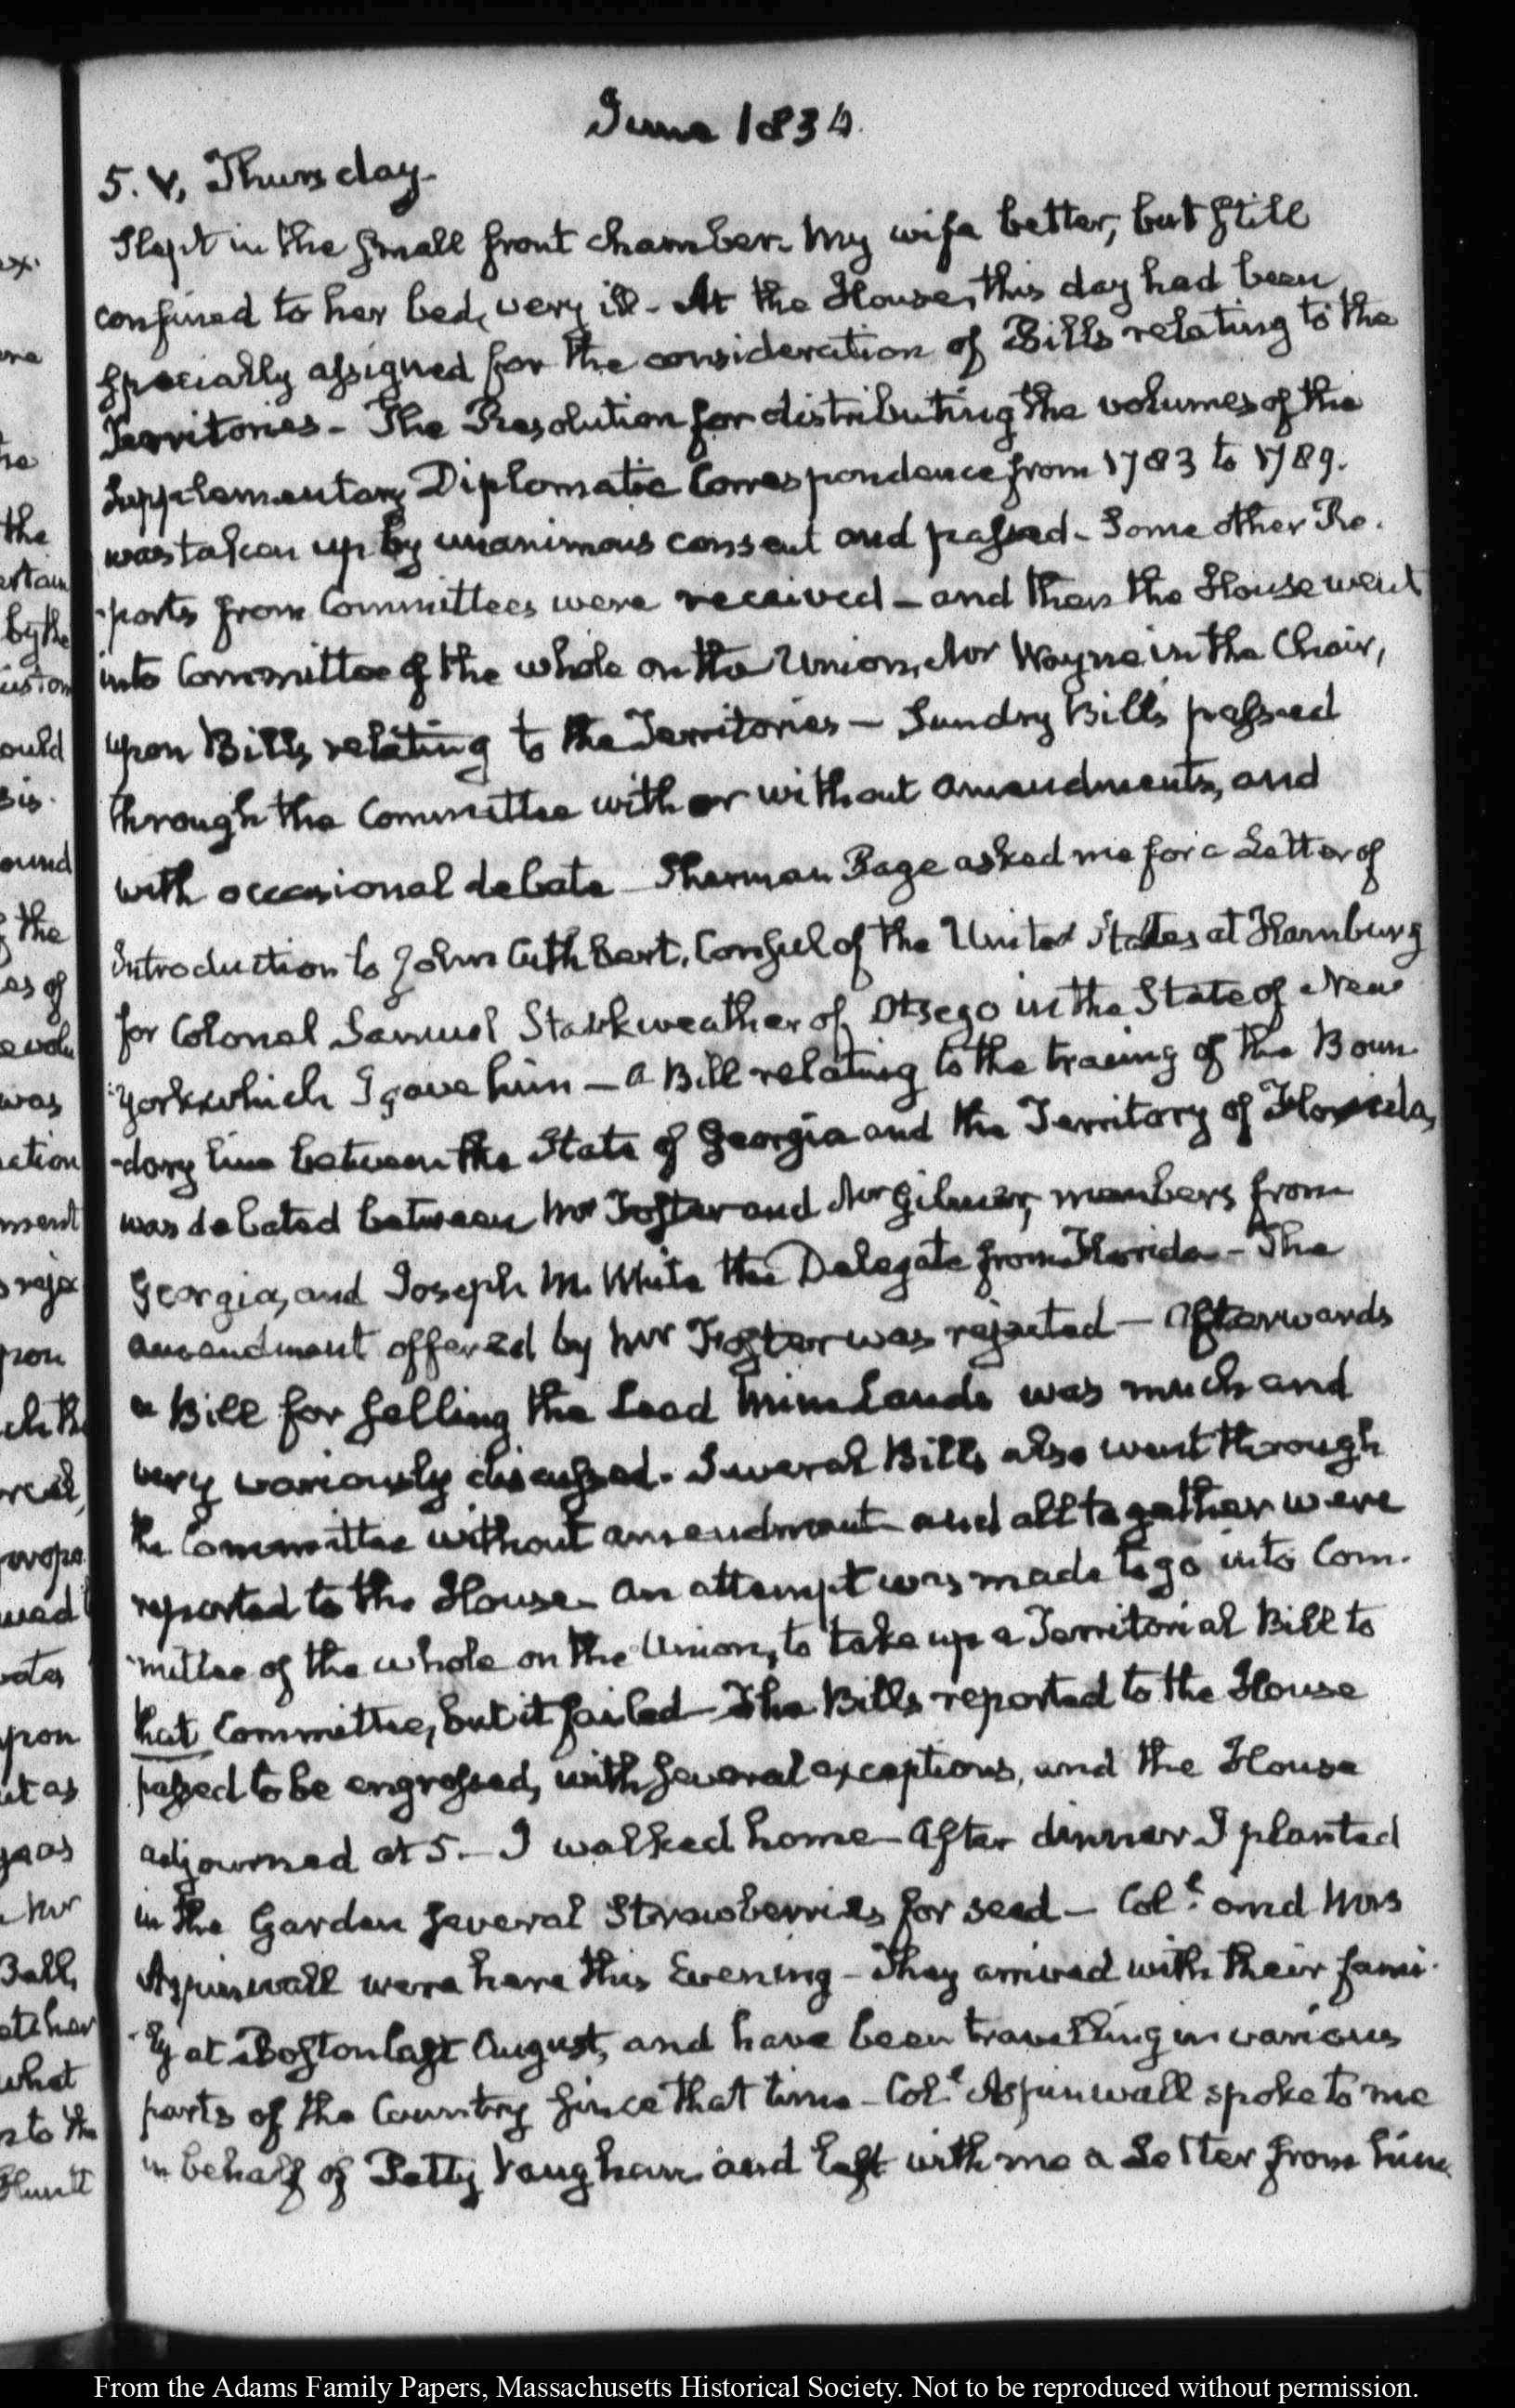 June 1834.
5. V, Thursday.
Slept in the small front chamber. My wife better, but still
confined to her bed, very ill - At the House, this day had been
specially assigned for the consideration of Bills relating to the
Territories - The Resolution for distributing the volumes of the
Supplementary Diplomatic Correspondence from 1783 to 1789.
was taken up by unanimous consent and passed - Some other Re-
-ports from Committees were received - and then the House went
into Committee of the whole on the Union, Mr Wayne in the Chair,
upon Bills relating to the Territories - Sundry Bills passed
through the Committee with or without amendments, and
with occasional debate - Sherman Page asked me for a Letter of
Introduction to John Cuthbert, Consul of the United States at Hamburg
for Colonel Samuel Starkweather of Otsego in the State of New
York which I gave him - a Bill relating to the tracing of the Boun-
-dary line between the State of Georgia and the Territory of Florida,
was debated between Mr Foster and Mr Gilmer, members from
Georgia, and Joseph M. White the Delegate from Florida - The
amendment offered by Mr Foster was rejected - Afterwards
a Bill for selling the Lead mine Lands was much and
very variously discussed. Several Bills also went through
the Committee without amendment and all together were
reported to the House - An attempt was made to go into Com-
-mittee of the whole on the Union, to take up a Territorial Bill to
that Committee, but it failed - The Bills reported to the House
passed to be engrossed, with several exceptions, and the House
adjourned at 5. - I walked home - After dinner I planted
in the Garden several Strawberries for seed - Coll. and Mrs
Aspinwall were here this Evening - They arrived with their fami-
-ly at Boston last August, and have been travelling in various
parts of the Country since that time - Coll. Aspinwall spoke to me
in behalf of Petty Vaughan and left with me a Letter from him
the
by the
ould
sis.
ound
the
as of
was
ction
ment
pon
upon
what
From the Adams Family Papers, Massachusetts Historical Society. Not to be reproduced without permission.